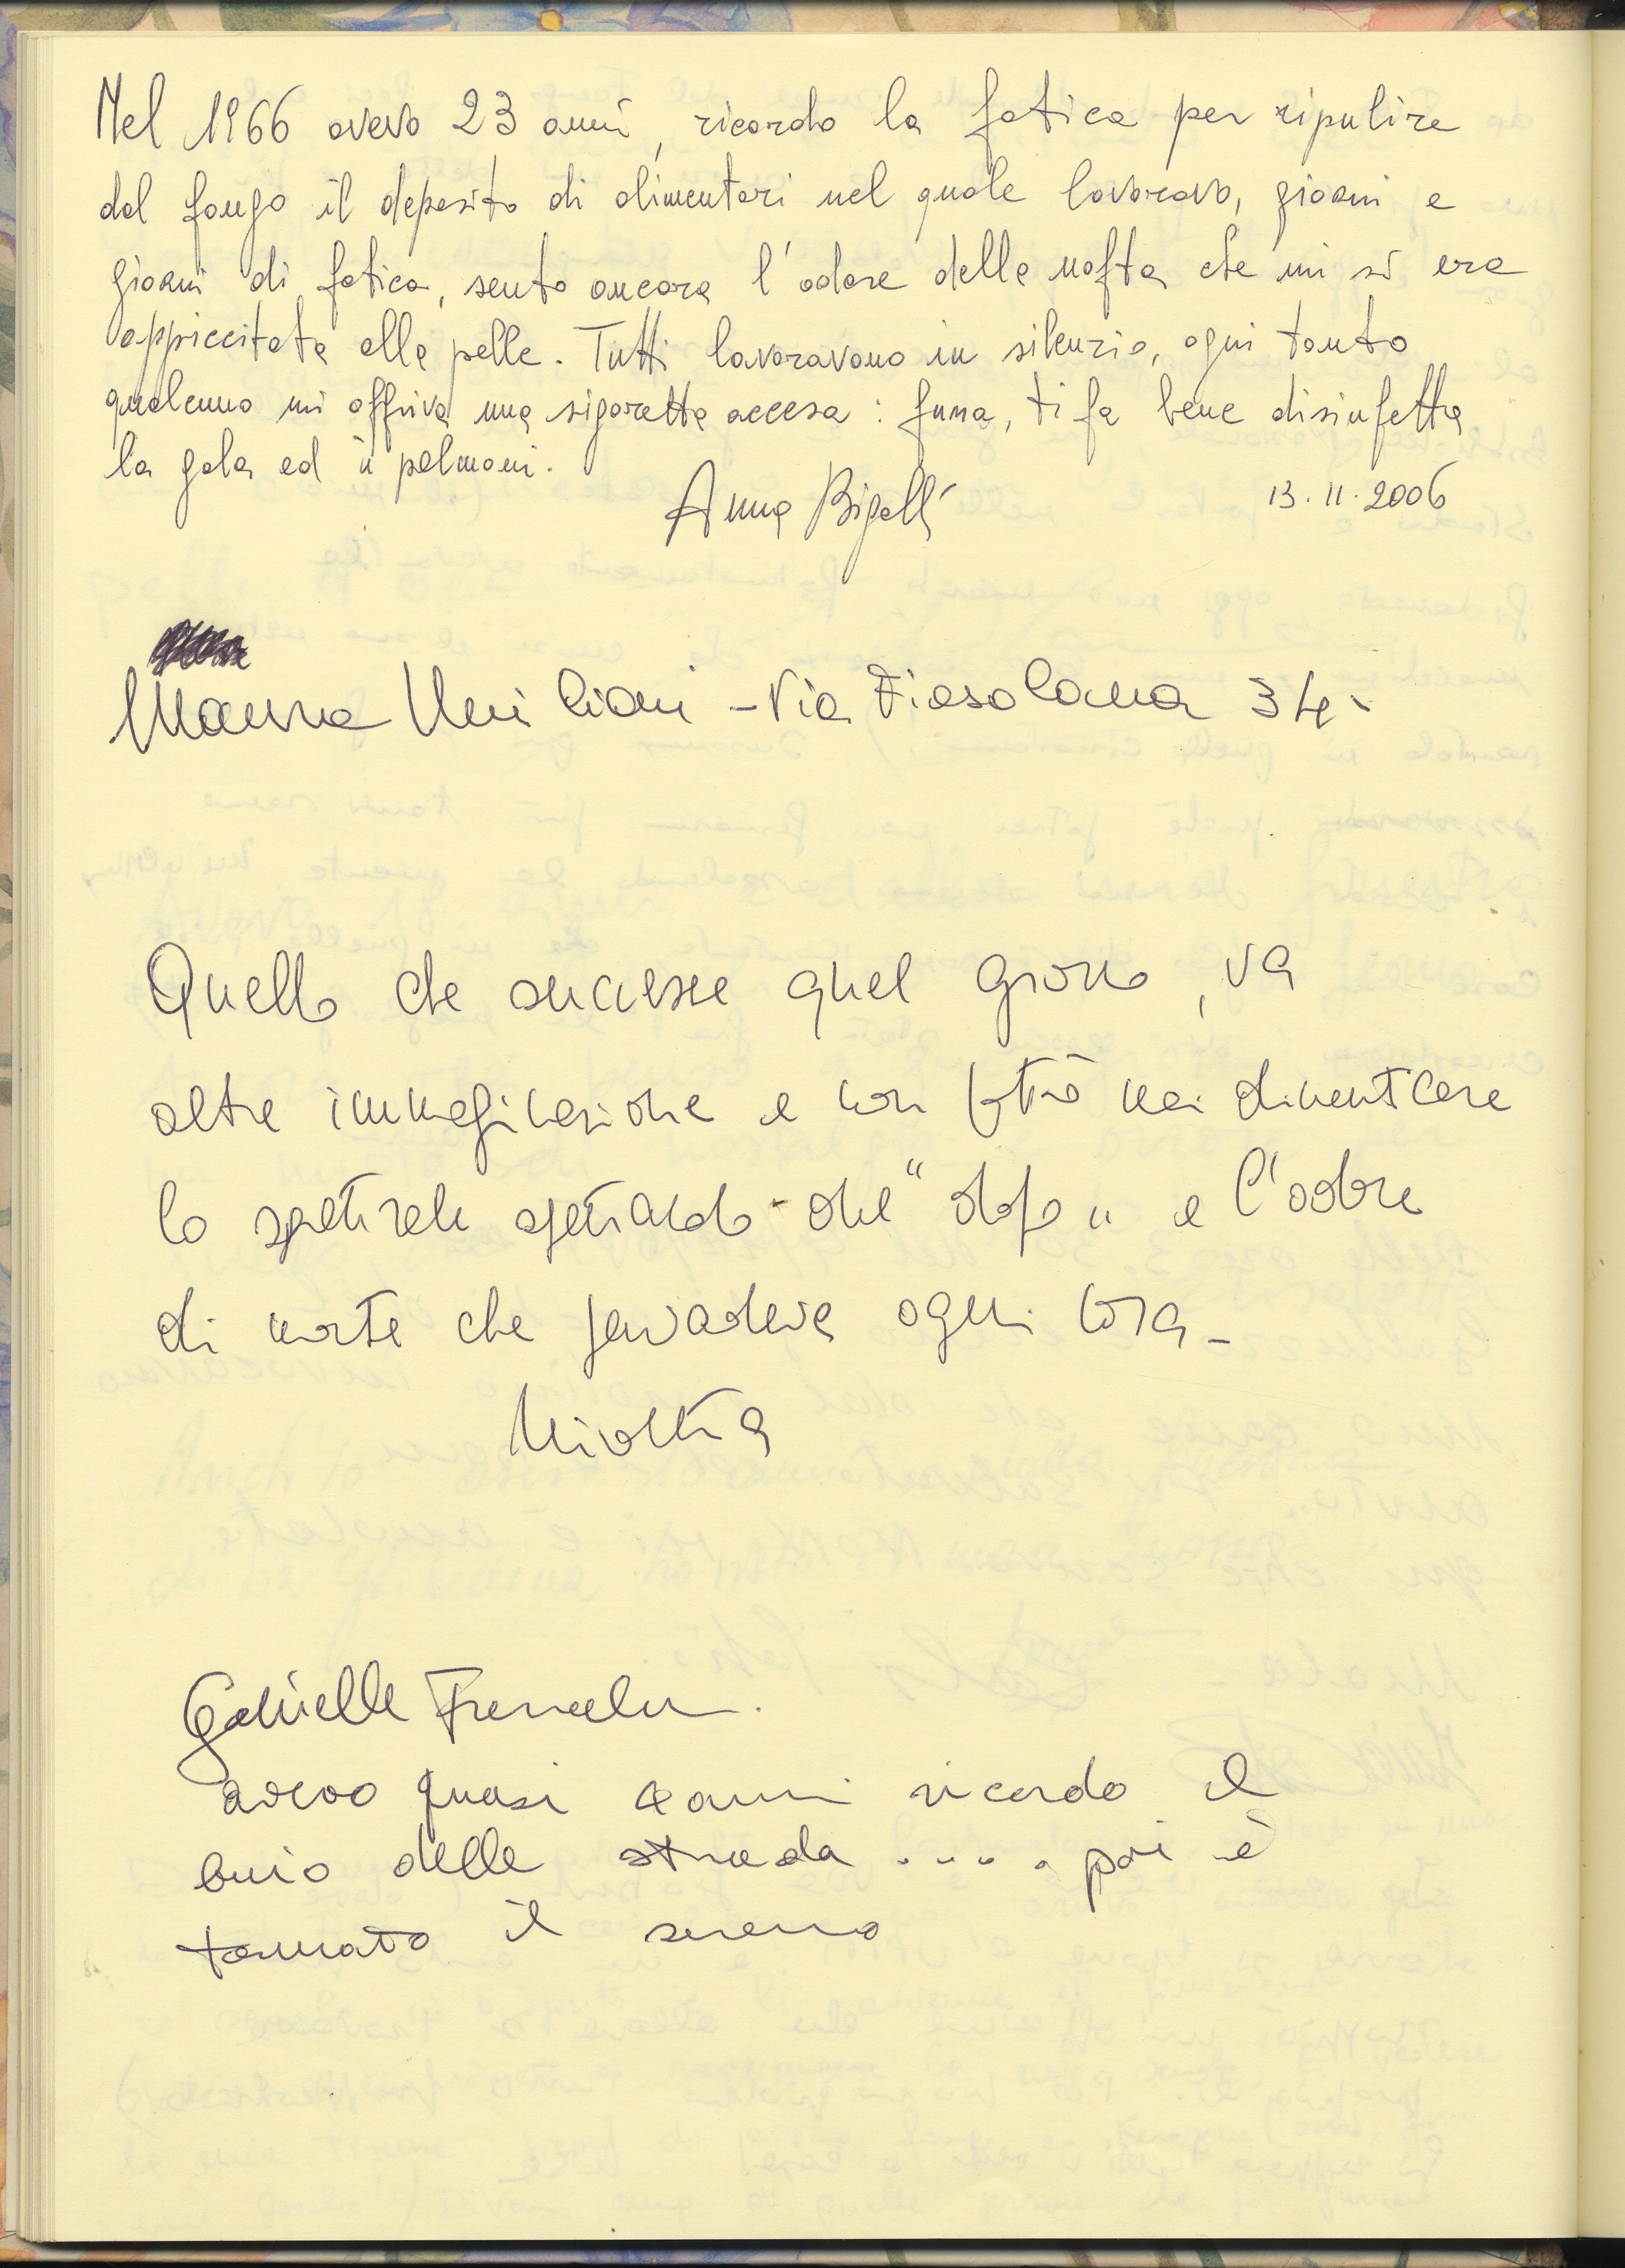 Nel 1966 avevo 23 anni, ricordo la fatica per ripulire
dal fango il deposito di alimentari nel quale lavoravo, giorni e
giorni di fatica, sento ancora l'odore della nafta che mi si era
appiccicata alla pelle. Tutti lavoravano in silenzio, ogni tanto
qualcuno mi offriva una sigaretta accesa: fuma, ti fa bene disinfetta
la gola ed i polmoni.
Anna Bigalli
13.11.2006
Via Fiesolana 34
Quello che successe quel giorno, va
oltre immaginazione e non potrò mai dimenticare
lo spettrale del "dopo" e l'odore
di morte che pervadeva ogni cosa -
avevo quasi 4 anni ricordo il
buio della strada ..... poi è
tornato il sereno